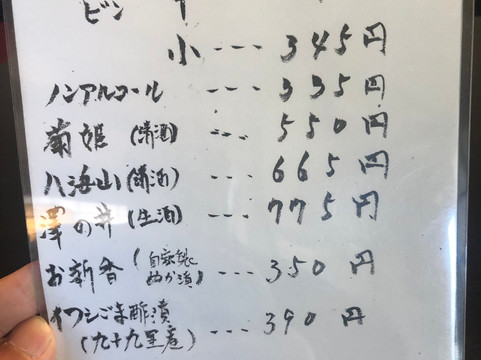 ビン
小 --- 345円
ノンアルコール --- 335円
菊姫(清酒) --- 550円
八海山(清酒) --- 665円
澤の井(生酒) --- 775円
お新香(自家製ぬか漬) --- 350円
イワシごま酢漬 --- 390円
(九十九里産)